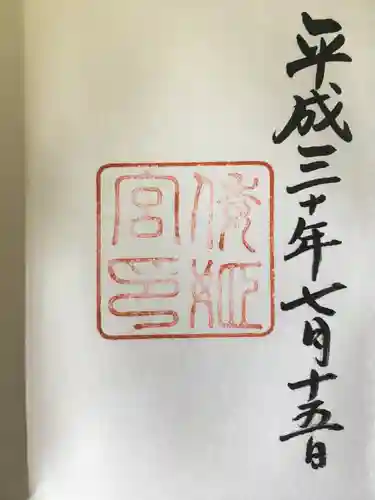 平成三十年七月十五日
倭姫
宮印